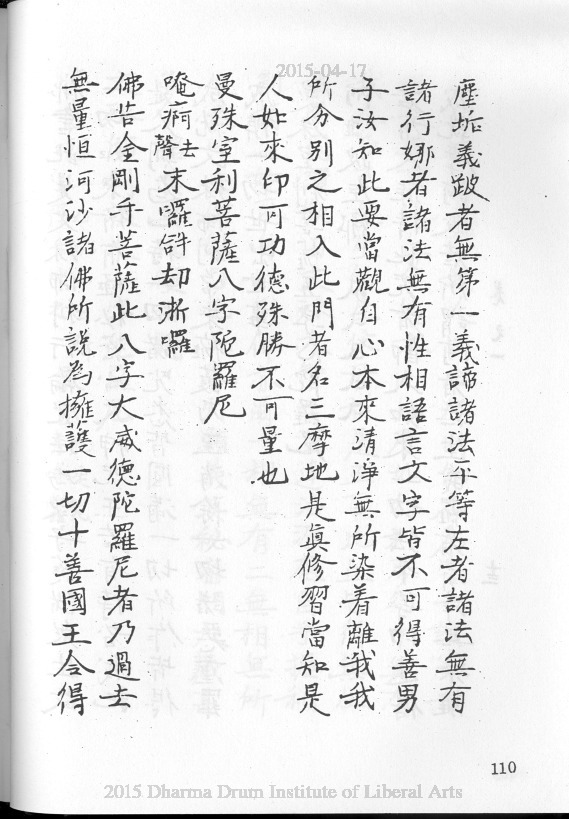 2015-04-17
塵垢義跛者無第一義諦諸法平等左者諸法無有
諸行娜者諸法無有性相語言文字皆不可得善男
子汝知此要當觀自心本來清淨無所染着離我我
所分別之相入此門者名三摩地是眞修習當知是
人如來印可功德殊勝不可量也
曼殊室利菩薩八字陀羅尼
唵痾去聲末囉鋅却淅囉
佛告金剛手菩薩此八字大威德陀羅尼者乃過去
無量恒河沙諸佛所説為擁護一切十善國王令得
110
2015 Dharma Drum Institute of Liberal Arts